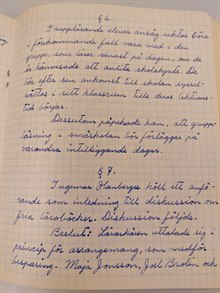 § 6.
Grupplärande elever ansåg rektor böra
i förekommande fall vara med i den
grupp, som läser senast på dagen, om de
är hänvisade att anlita skolskjuts. De
bör efter sin ankomst till skolan syssel-
sättas i sitt klassrum tills dess lektions-
tid börjas.
Dessutom påpekade han, att grupp-
läsning i småskolan bör förläggas på
varandra intilliggande dagar.
§ 7.
Ingemar Hamberger höll ett anfö-
rande som inledning till diskussion om
fria läroböcker. Diskussion följde.
Beslut: Lärarkåren uttalade sig i
princip för arrangemang, som medför
besparing. Maja Jonsson, Joel Brolin och